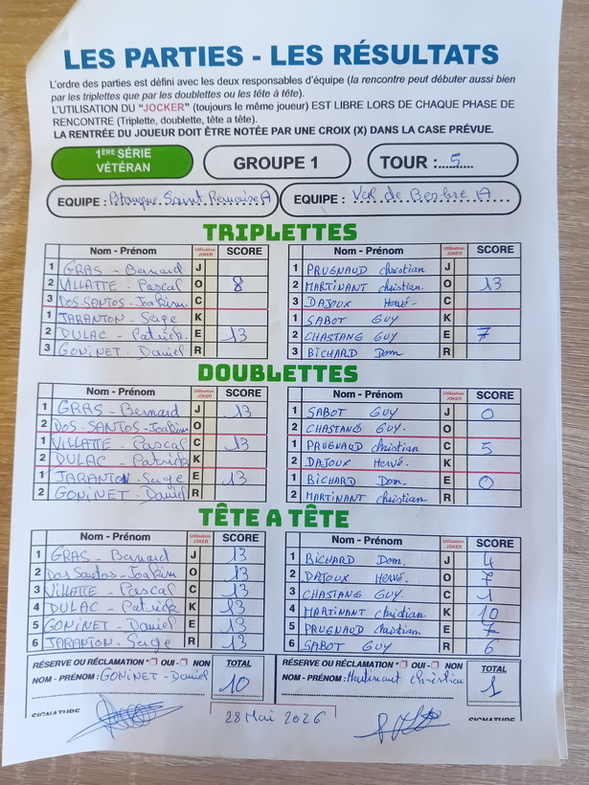 LES PARTIES - LES RÉSULTATS
L'ordre des parties est défini avec les deux responsables d'équipe (la rencontre peut débuter aussi bien
par les triplettes que par les doublettes ou les tête à tête).
L'UTILISATION DU "JOCKER" (toujours le même joueur) EST LIBRE LORS DE CHAQUE PHASE DE
RENCONTRE (Triplette, doublette, tête a tête).
LA RENTRÉE DU JOUEUR DOIT ÊTRE NOTÉE PAR UNE CROIX (X) DANS LA CASE PRÉVUE.
1ÈRE SÉRIE
VÉTÉRAN
GROUPE 1
TOUR : 5
EQUIPE : Pétanque Saint Remoise A EQUIPE : Val de Besbre A
TRIPLETTES
Nom - Prénom Utilisation JOKER SCORE Nom - Prénom Utilisation JOKER SCORE
1 GRAS - Bernard J 1 PRUGNAUD christian J
2 VILLATTE - Pascal O 8 2 MARTINANT christian. O 13
3 DOS SANTOS - Joakim C 3 DAJOUX Hervé - C
1 JARANTON - Serge K 1 SABOT GUY K
2 DULAC - Patrick E 13 2 CHASTANG GUY E 7
3 GONINET - Daniel R 3 BICHARD Dom R
DOUBLETTES
Nom - Prénom Utilisation JOKER SCORE Nom - Prénom Utilisation JOKER SCORE
1 GRAS - Bernard J 13 1 SABOT GUY J 0
2 DOS-SANTOS - Joakim O 2 CHASTANG GUY. O
1 VILLATTE - Pascal C 13 1 PRUGNAUD christian C 5
2 DULAC - Patrick K 2 DAJOUX Hervé. K
1 JARANTON Serge E 13 1 BICHARD Dom. E 0
2 GONINET - Daniel R 2 MARTINANT christian R
TÊTE A TÊTE
Nom - Prénom Utilisation JOKER SCORE Nom - Prénom Utilisation JOKER SCORE
1 GRAS - Bernard J 13 1 BICHARD Dom. J 4
2 Dos Santos - Joakim O 13 2 DAJOUX Hervé. O 7
3 VILLATTE - Pascal C 13 3 CHASTANG GUY. C 1
4 DULAC - Patrick K 13 4 MARTINANT christian K 10
5 GONINET - Daniel E 13 5 PRUGNAUD christian. E 7
6 JARANTON - Serge R 13 6 SABOT GUY R 6
RÉSERVE OU RÉCLAMATION * OUI - NON TOTAL RÉSERVE OU RÉCLAMATION * OUI - NON TOTAL
NOM - PRÉNOM : GONINET - Daniel 10 NOM - PRÉNOM : Martinant christian 1
SIGNATURE 28 Mai 2026 SIGNATURE